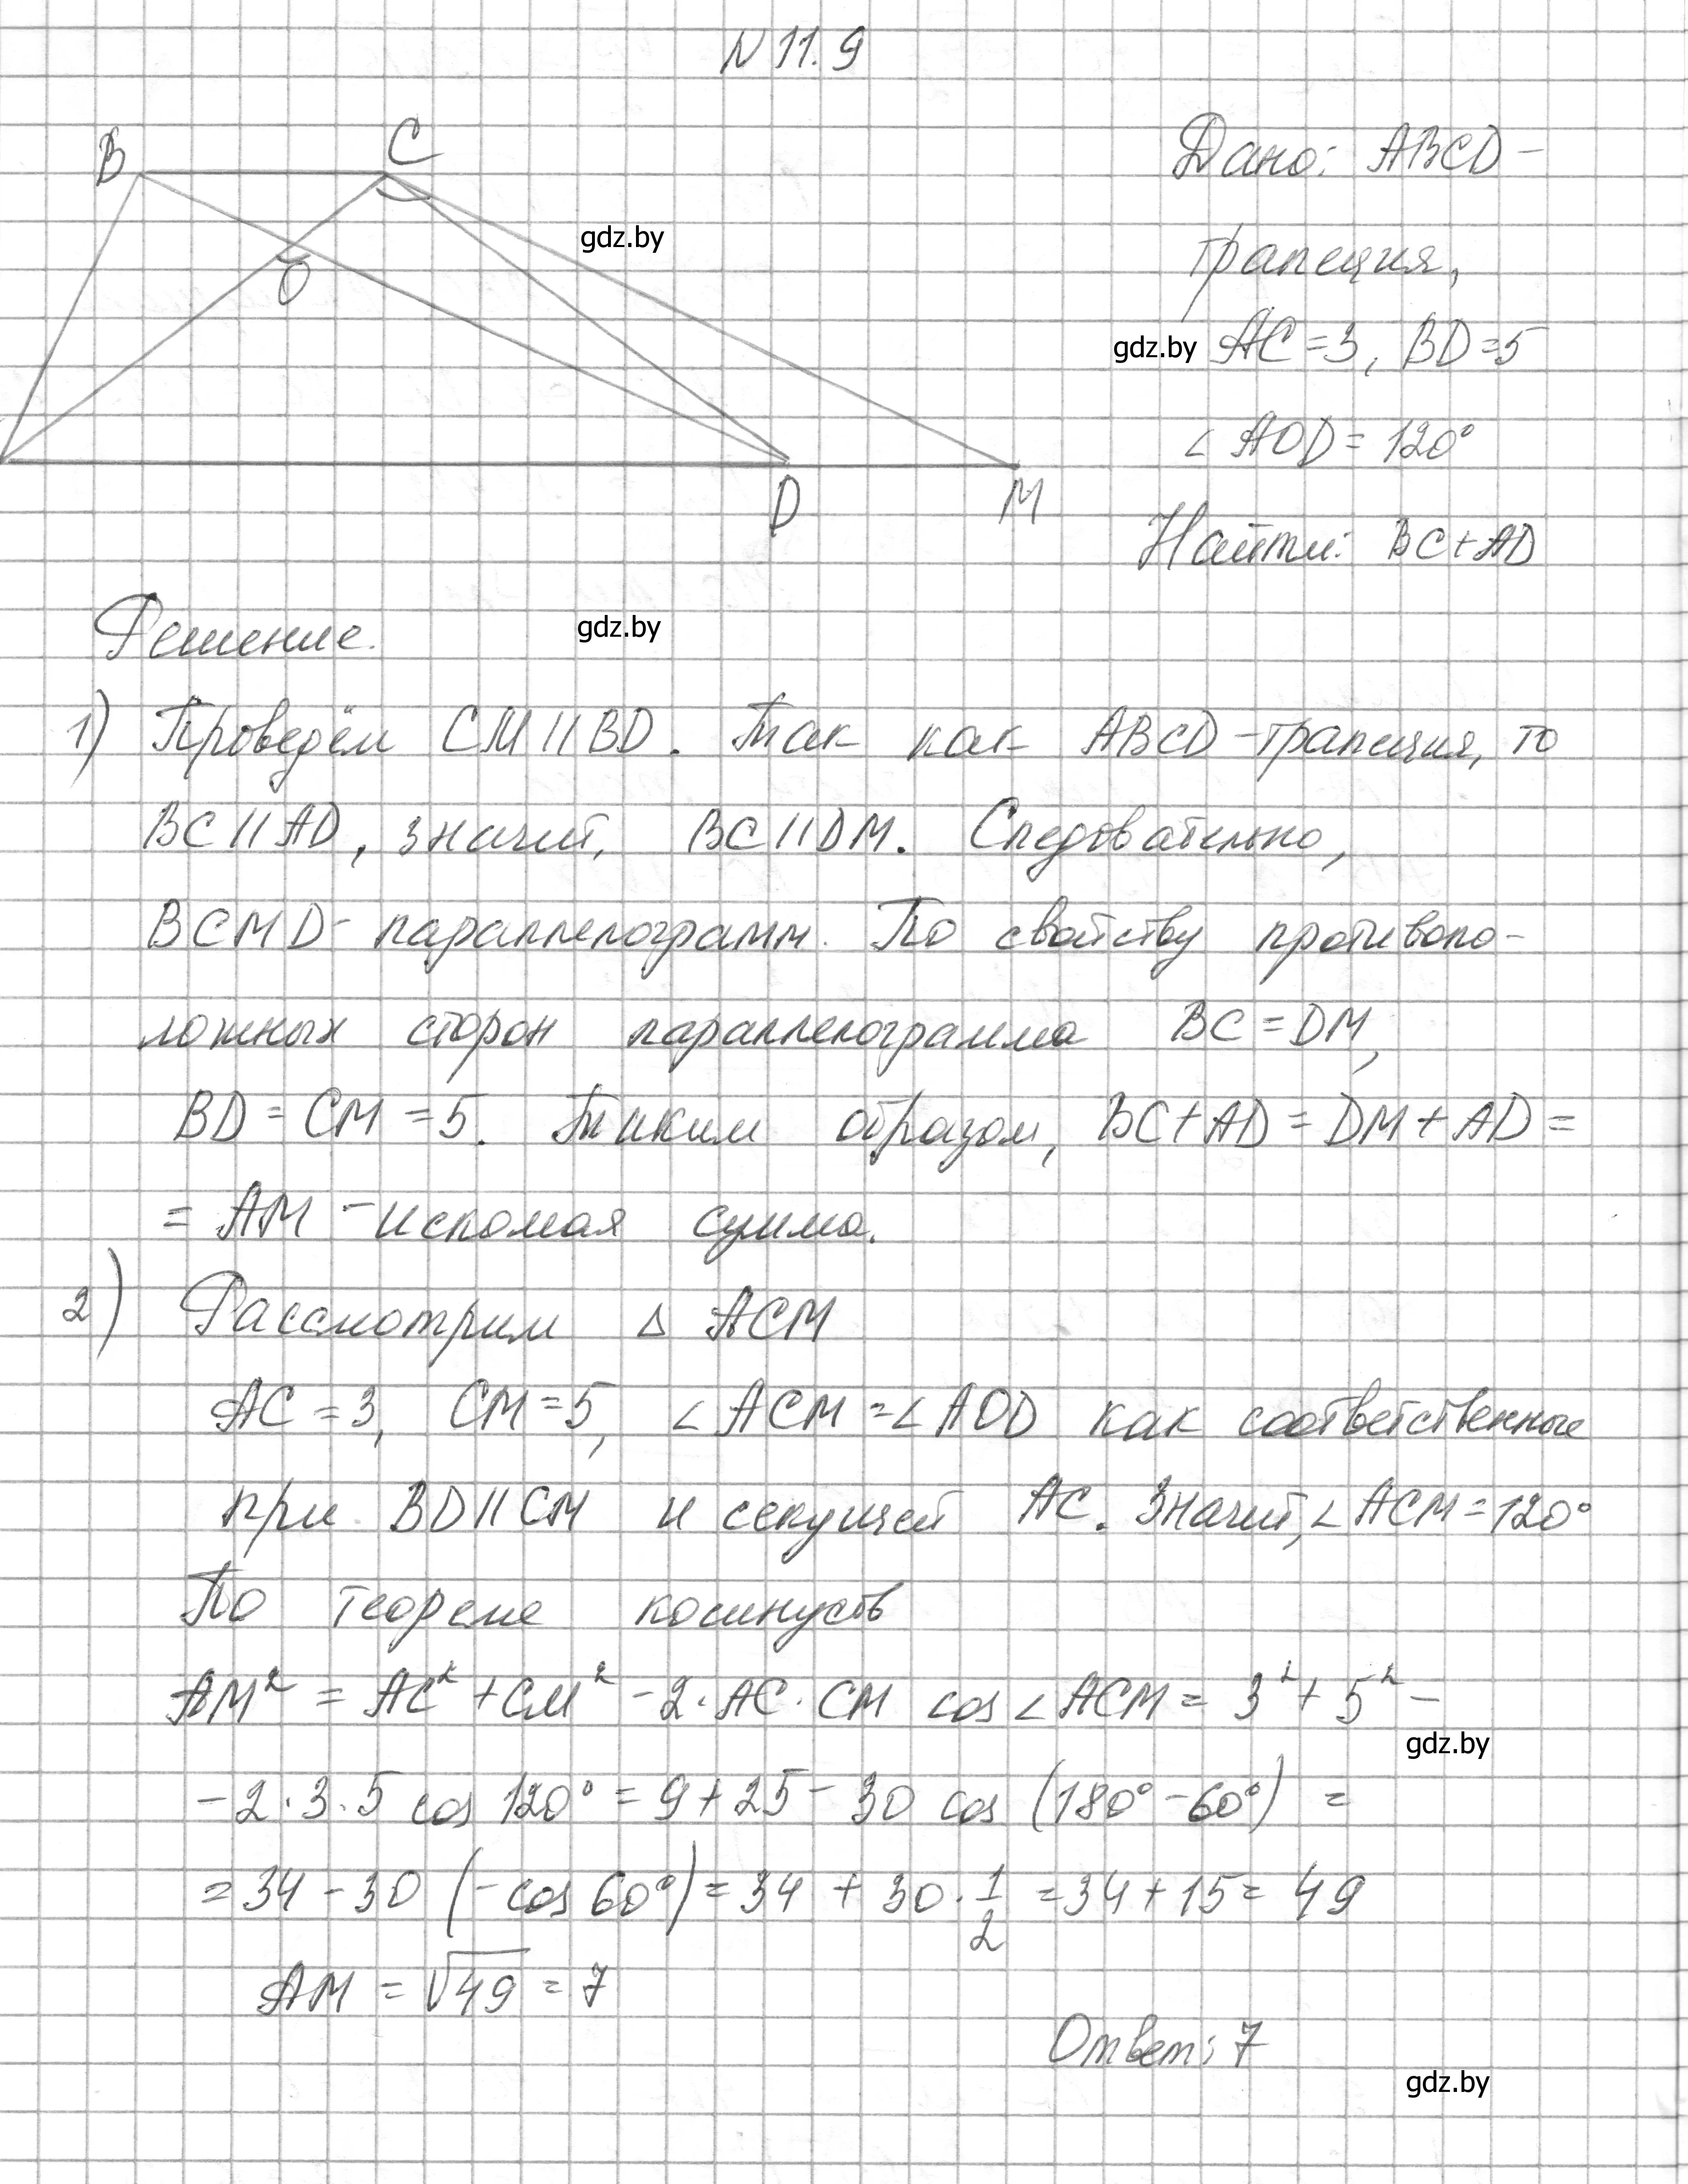 N 11.9
B
C
O
D
M
Дано: ABCD –
трапеция,
AC = 3, BD = 5
∠ AOD = 120°
Найти: BC + AD
gdz.by
gdz.by
Решение.
gdz.by
1) Проведём CM || BD. Так как ABCD – трапеция, то
BC || AD, значит, BC || DM. Следовательно,
BCMD – параллелограмм. По свойству противопо-
ложных сторон параллелограмма BC = DM,
BD = CM = 5. Таким образом, BC + AD = DM + AD =
= AM – искомая сумма.
2) Рассмотрим Δ ACM
AC = 3, CM = 5, ∠ ACM = ∠ AOD как соответственные
при BD || CM и секущей AC. Значит, ∠ ACM = 120°
По теореме косинусов
AM² = AC² + CM² – 2 · AC · CM cos ∠ ACM = 3² + 5² –
gdz.by
– 2 · 3 · 5 cos 120° = 9 + 25 – 30 cos (180° – 60°) =
= 34 – 30 (– cos 60°) = 34 + 30 · 1/2 = 34 + 15 = 49
AM = √49 = 7
Ответ: 7
gdz.by